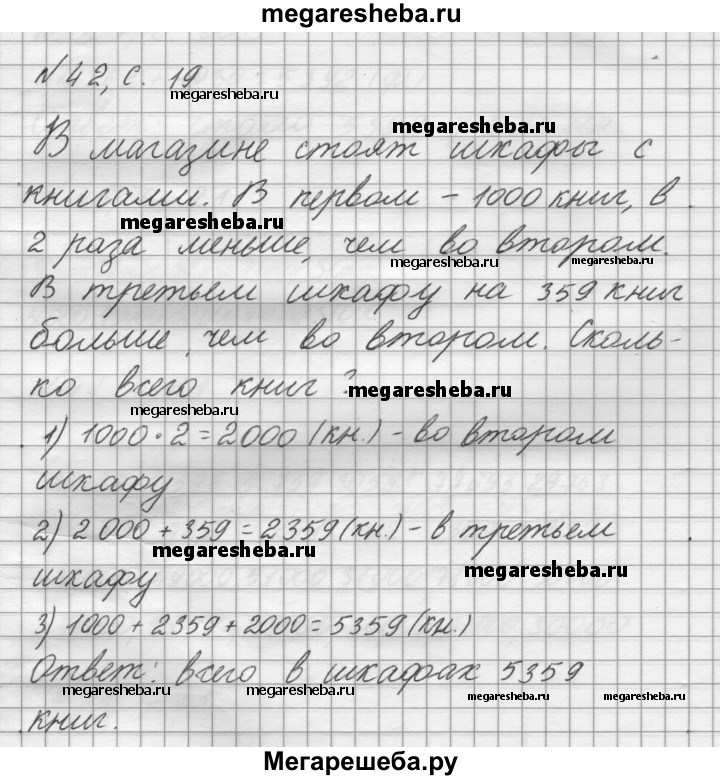 megaresheba.ru
№ 42, с. 19
megaresheba.ru
megaresheba.ru
В магазине стоят шкафы с
книгами. В первом – 1000 книг, в
megaresheba.ru
2 раза меньше, чем во втором.
megaresheba.ru
megaresheba.ru
В третьем шкафу на 359 книг
больше, чем во втором. Сколь-
ко всего книг?
megaresheba.ru
megaresheba.ru
1) 1000 · 2 = 2000 (кн.) – во втором
шкафу
2) 2 000 + 359 = 2359 (кн.) – в третьем
megaresheba.ru
шкафу
megaresheba.ru
3) 1000 + 2359 + 2000 = 5359 (кн.)
Ответ: всего в шкафах 5359
megaresheba.ru
megaresheba.ru
megaresheba.ru
megaresheba.ru
книг.
Мегарешеба.ру